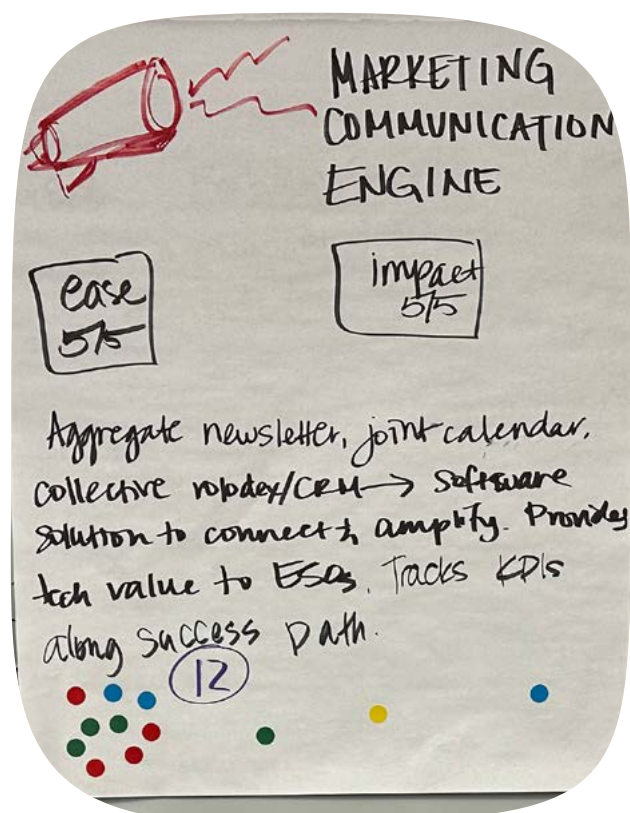 MARKETING
COMMUNICATION
ENGINE
ease
5/5
impact
5/5
Aggregate newsletter, joint calendar,
collective rolodex/CRM → Software
solution to connect & amplify. Provides
tech value to ESOs. Tracks KPIs
along success path.
12